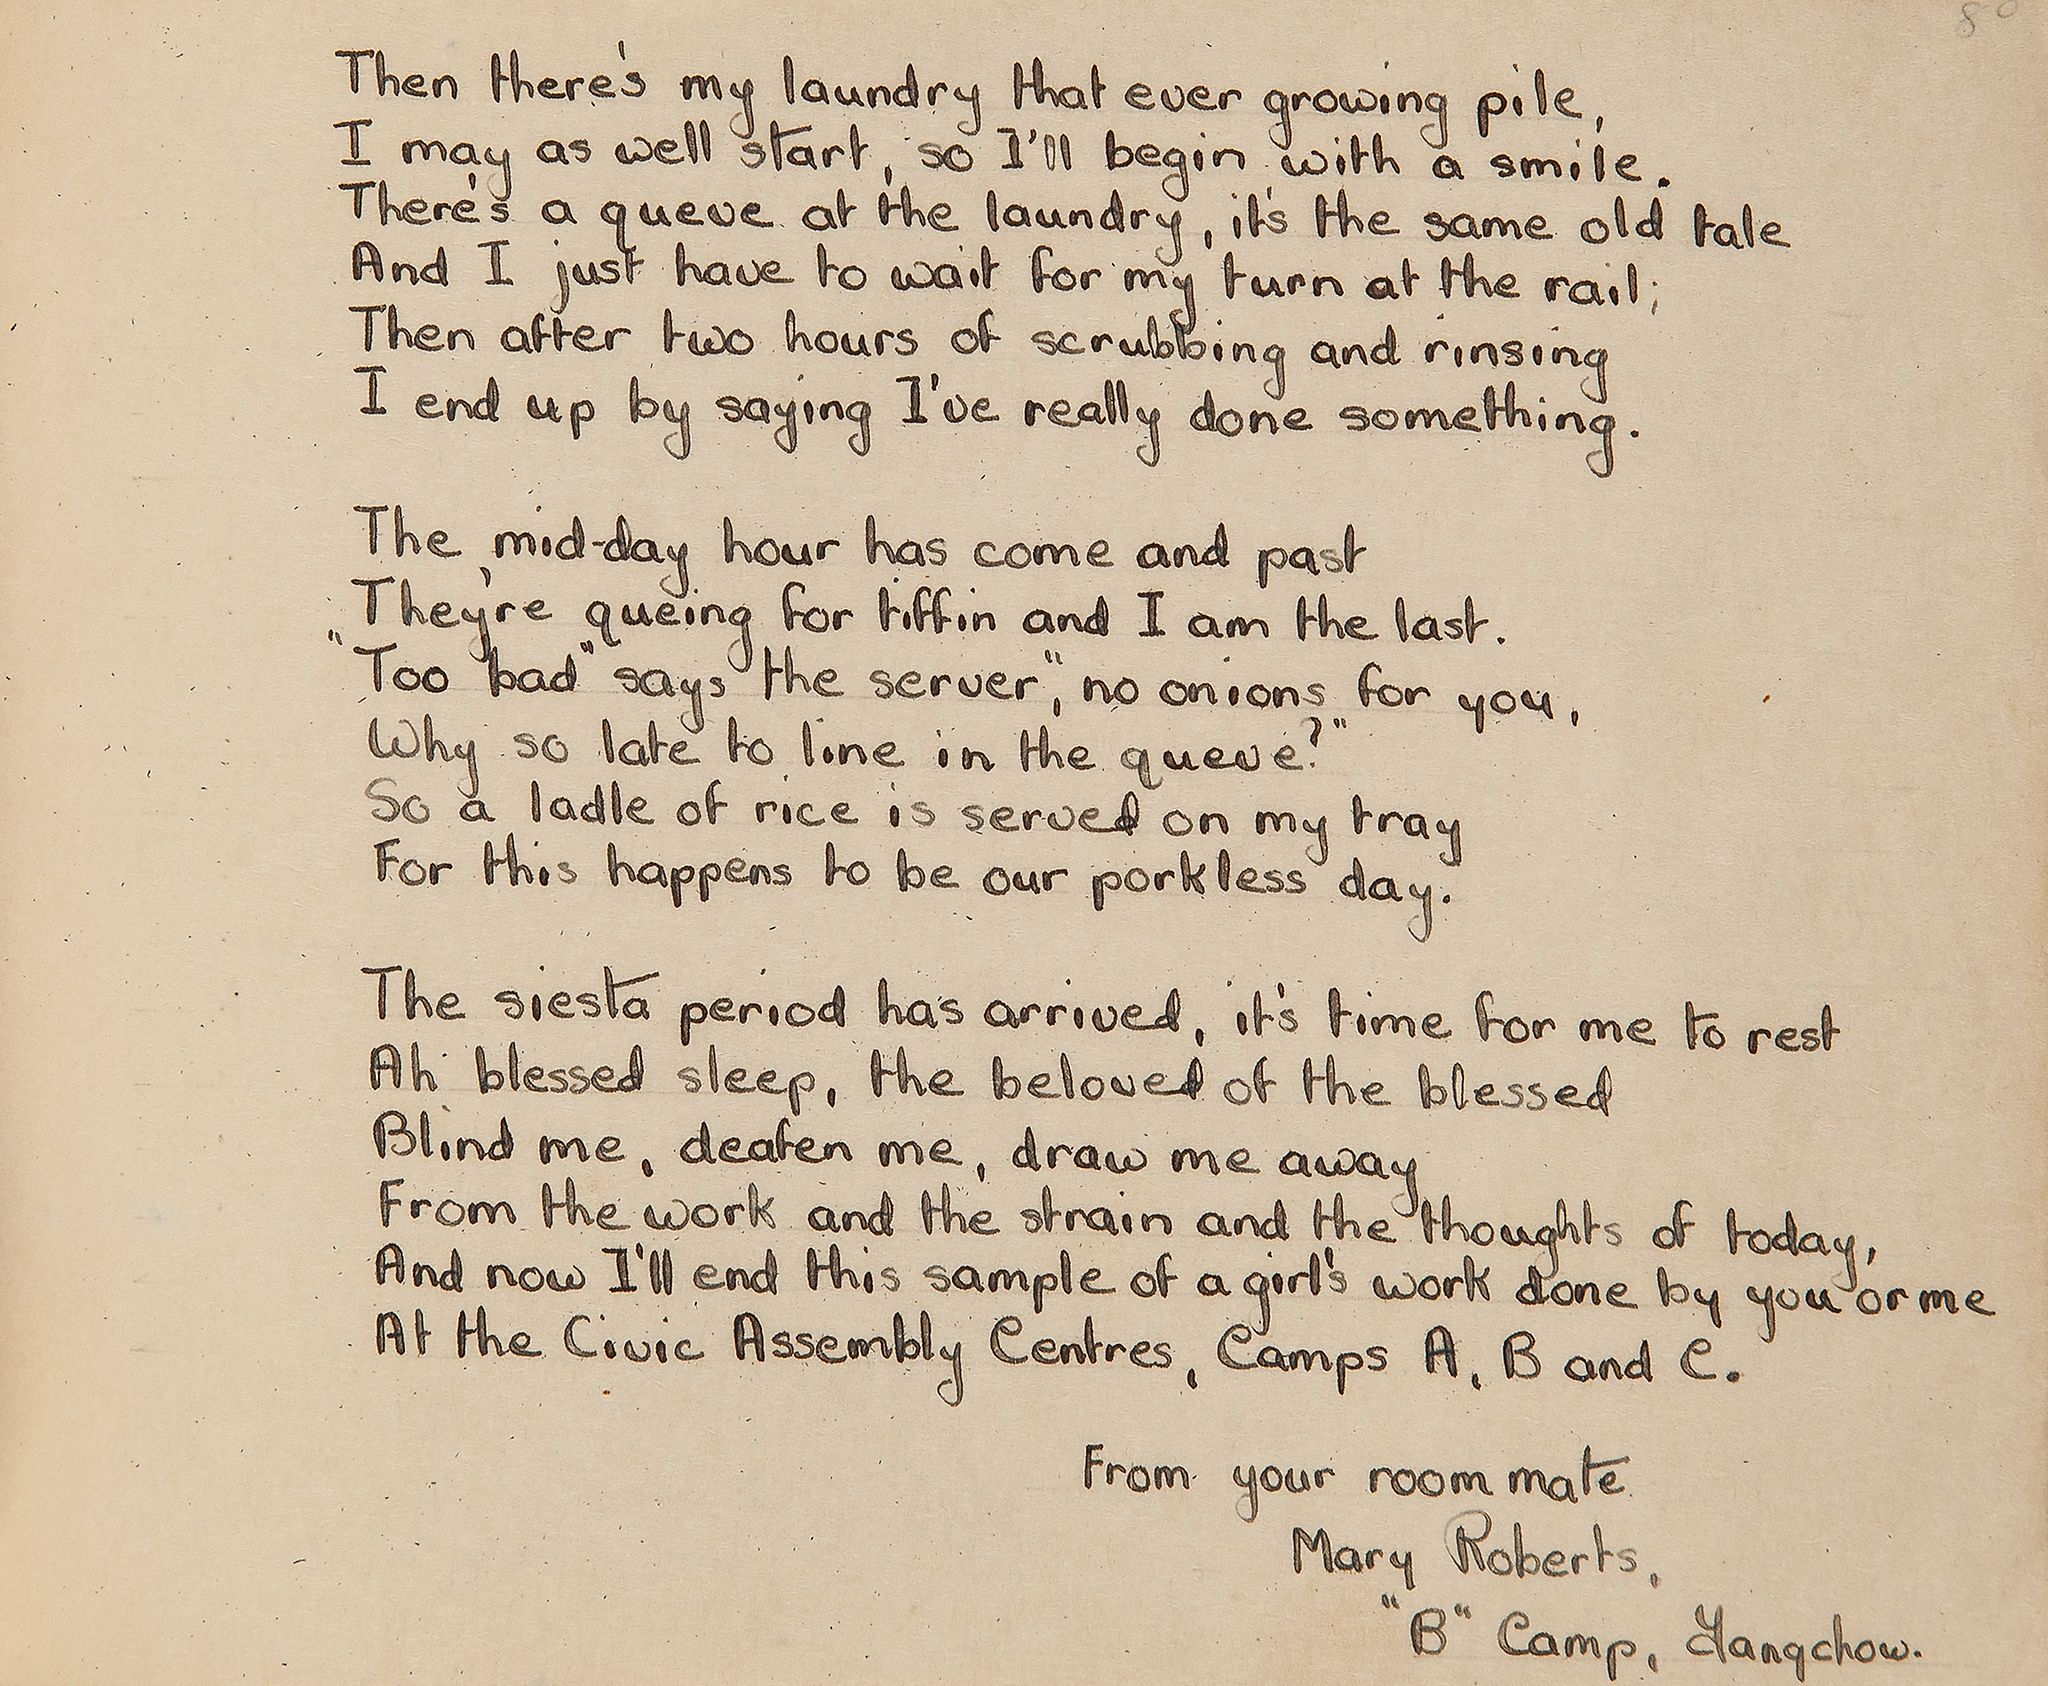 Then there's my laundry that ever growing pile,
I may as well start, so I'll begin with a smile.
There's a queue at the laundry, it's the same old tale
And I just have to wait for my turn at the rail;
Then after two hours of scrubbing and rinsing
I end up by saying I've really done something.
The mid-day hour has come and past
They're queing for tiffin and I am the last.
"Too bad" says the server", no onions for you,
Why so late to line in the queue?"
So a ladle of rice is served on my tray
For this happens to be our porkless day.
The siesta period has arrived, it's time for me to rest
Ah blessed sleep, the beloved of the blessed
Blind me, deafen me, draw me away
From the work and the strain and the thoughts of today,
And now I'll end this sample of a girl's work done by you or me
At the Civic Assembly Centres, Camps A, B and C.
From your room mate
Mary Roberts,
"B" Camp, Yangchow.